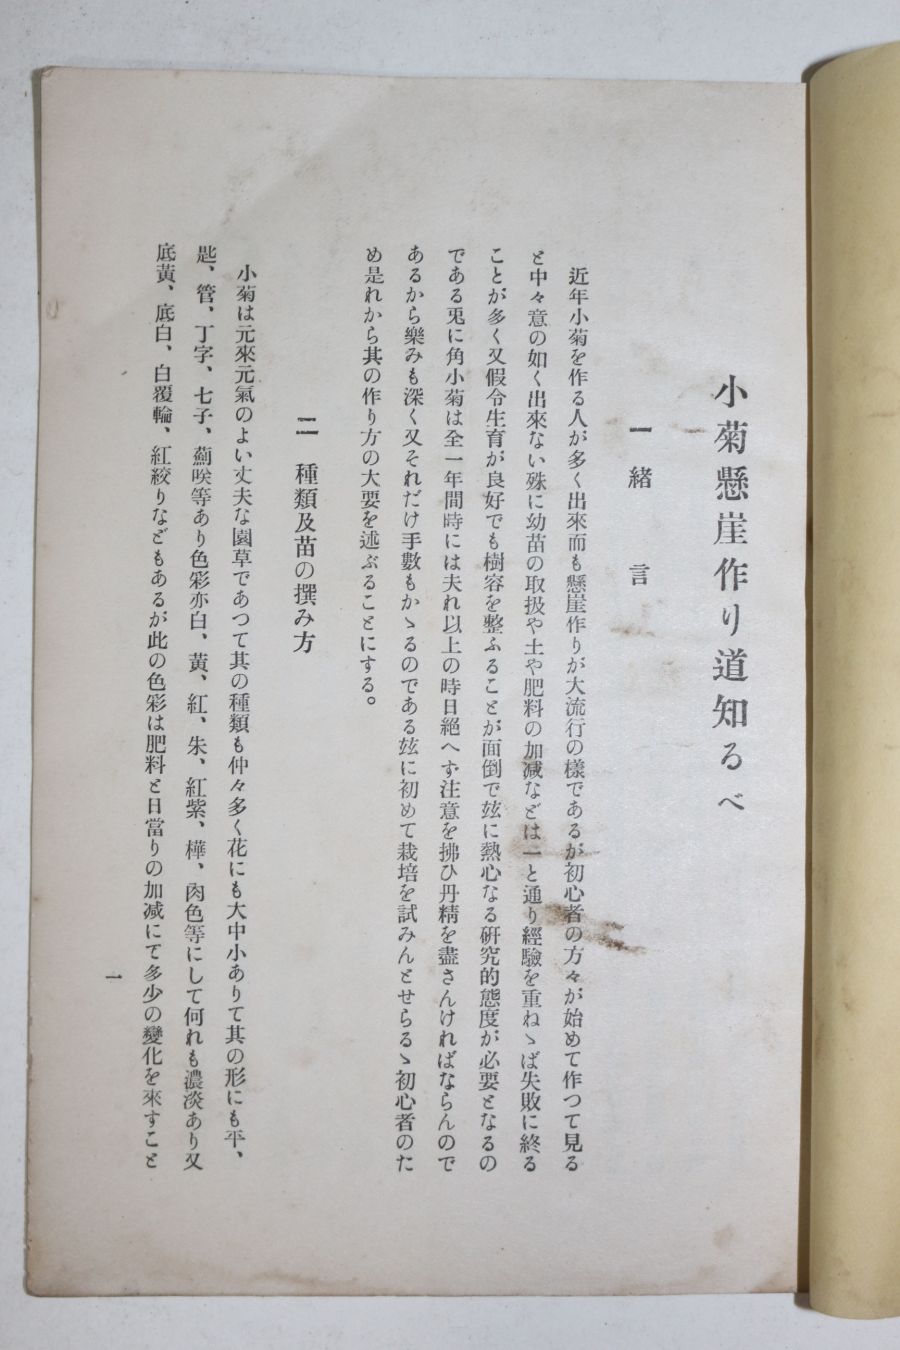 小菊懸崖作り道知るべ
一 緒言
近年小菊を作る人が多く出來而も懸崖作りが大流行の樣であるが初心者の方々が始めて作つて見る
と中々意の如く出來ない殊に幼苗の取扱や土や肥料の加減などは一と通り經驗を重ねゝば失敗に終る
ことが多く又假令生育が良好でも樹容を整ふることが面倒で玆に熱心なる研究的態度が必要となるの
である兎に角小菊は全一年間時には夫れ以上の時日絕へず注意を拂ひ丹精を盡さんければならんので
あるから樂みも深く又それだけ手數もかゝるのである玆に初めて栽培を試みんとせらるゝ初心者のた
め是れから其の作り方の大要を述ぶることにする。
二 種類及苗の撰み方
小菊は元來元氣のよい丈夫な園草であつて其の種類も仲々多く花にも大中小ありて其の形にも平、
匙、管、丁字、七子、薊咲等あり色彩亦白、黃、紅、朱、紅紫、樺、肉色等にして何れも濃淡あり又
底黃、底白、白覆輪、紅絞りなどもあるが此の色彩は肥料と日當りの加減にて多少の變化を來すこと
一